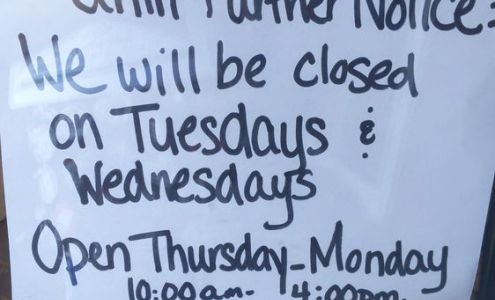 Until Further Notice:
We will be closed
on Tuesdays &
Wednesdays
Open Thursday-Monday
10:00am- 4:00pm